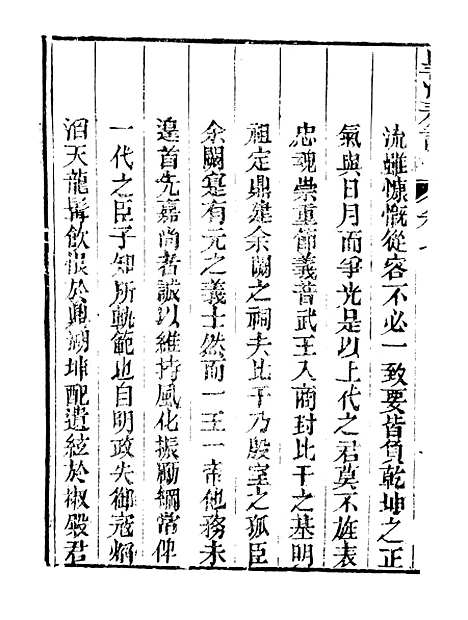 流雖慷慨從容不必一致要皆負乾坤之正
氣與日月而爭光是以上代之君莫不旌表
忠魂崇重節義昔武王入商封比干之墓明
祖定鼎建余闕之祠夫比干乃殷室之孤臣
余闕寔有元之義士然而一王一帝他務未
遑首先嘉尚者誠以維持風化振勵綱常俾
一代之臣子知所軌範也自明政失御寇焰
滔天龍髯飲恨於鼎湖坤配遺絃於椒殿君